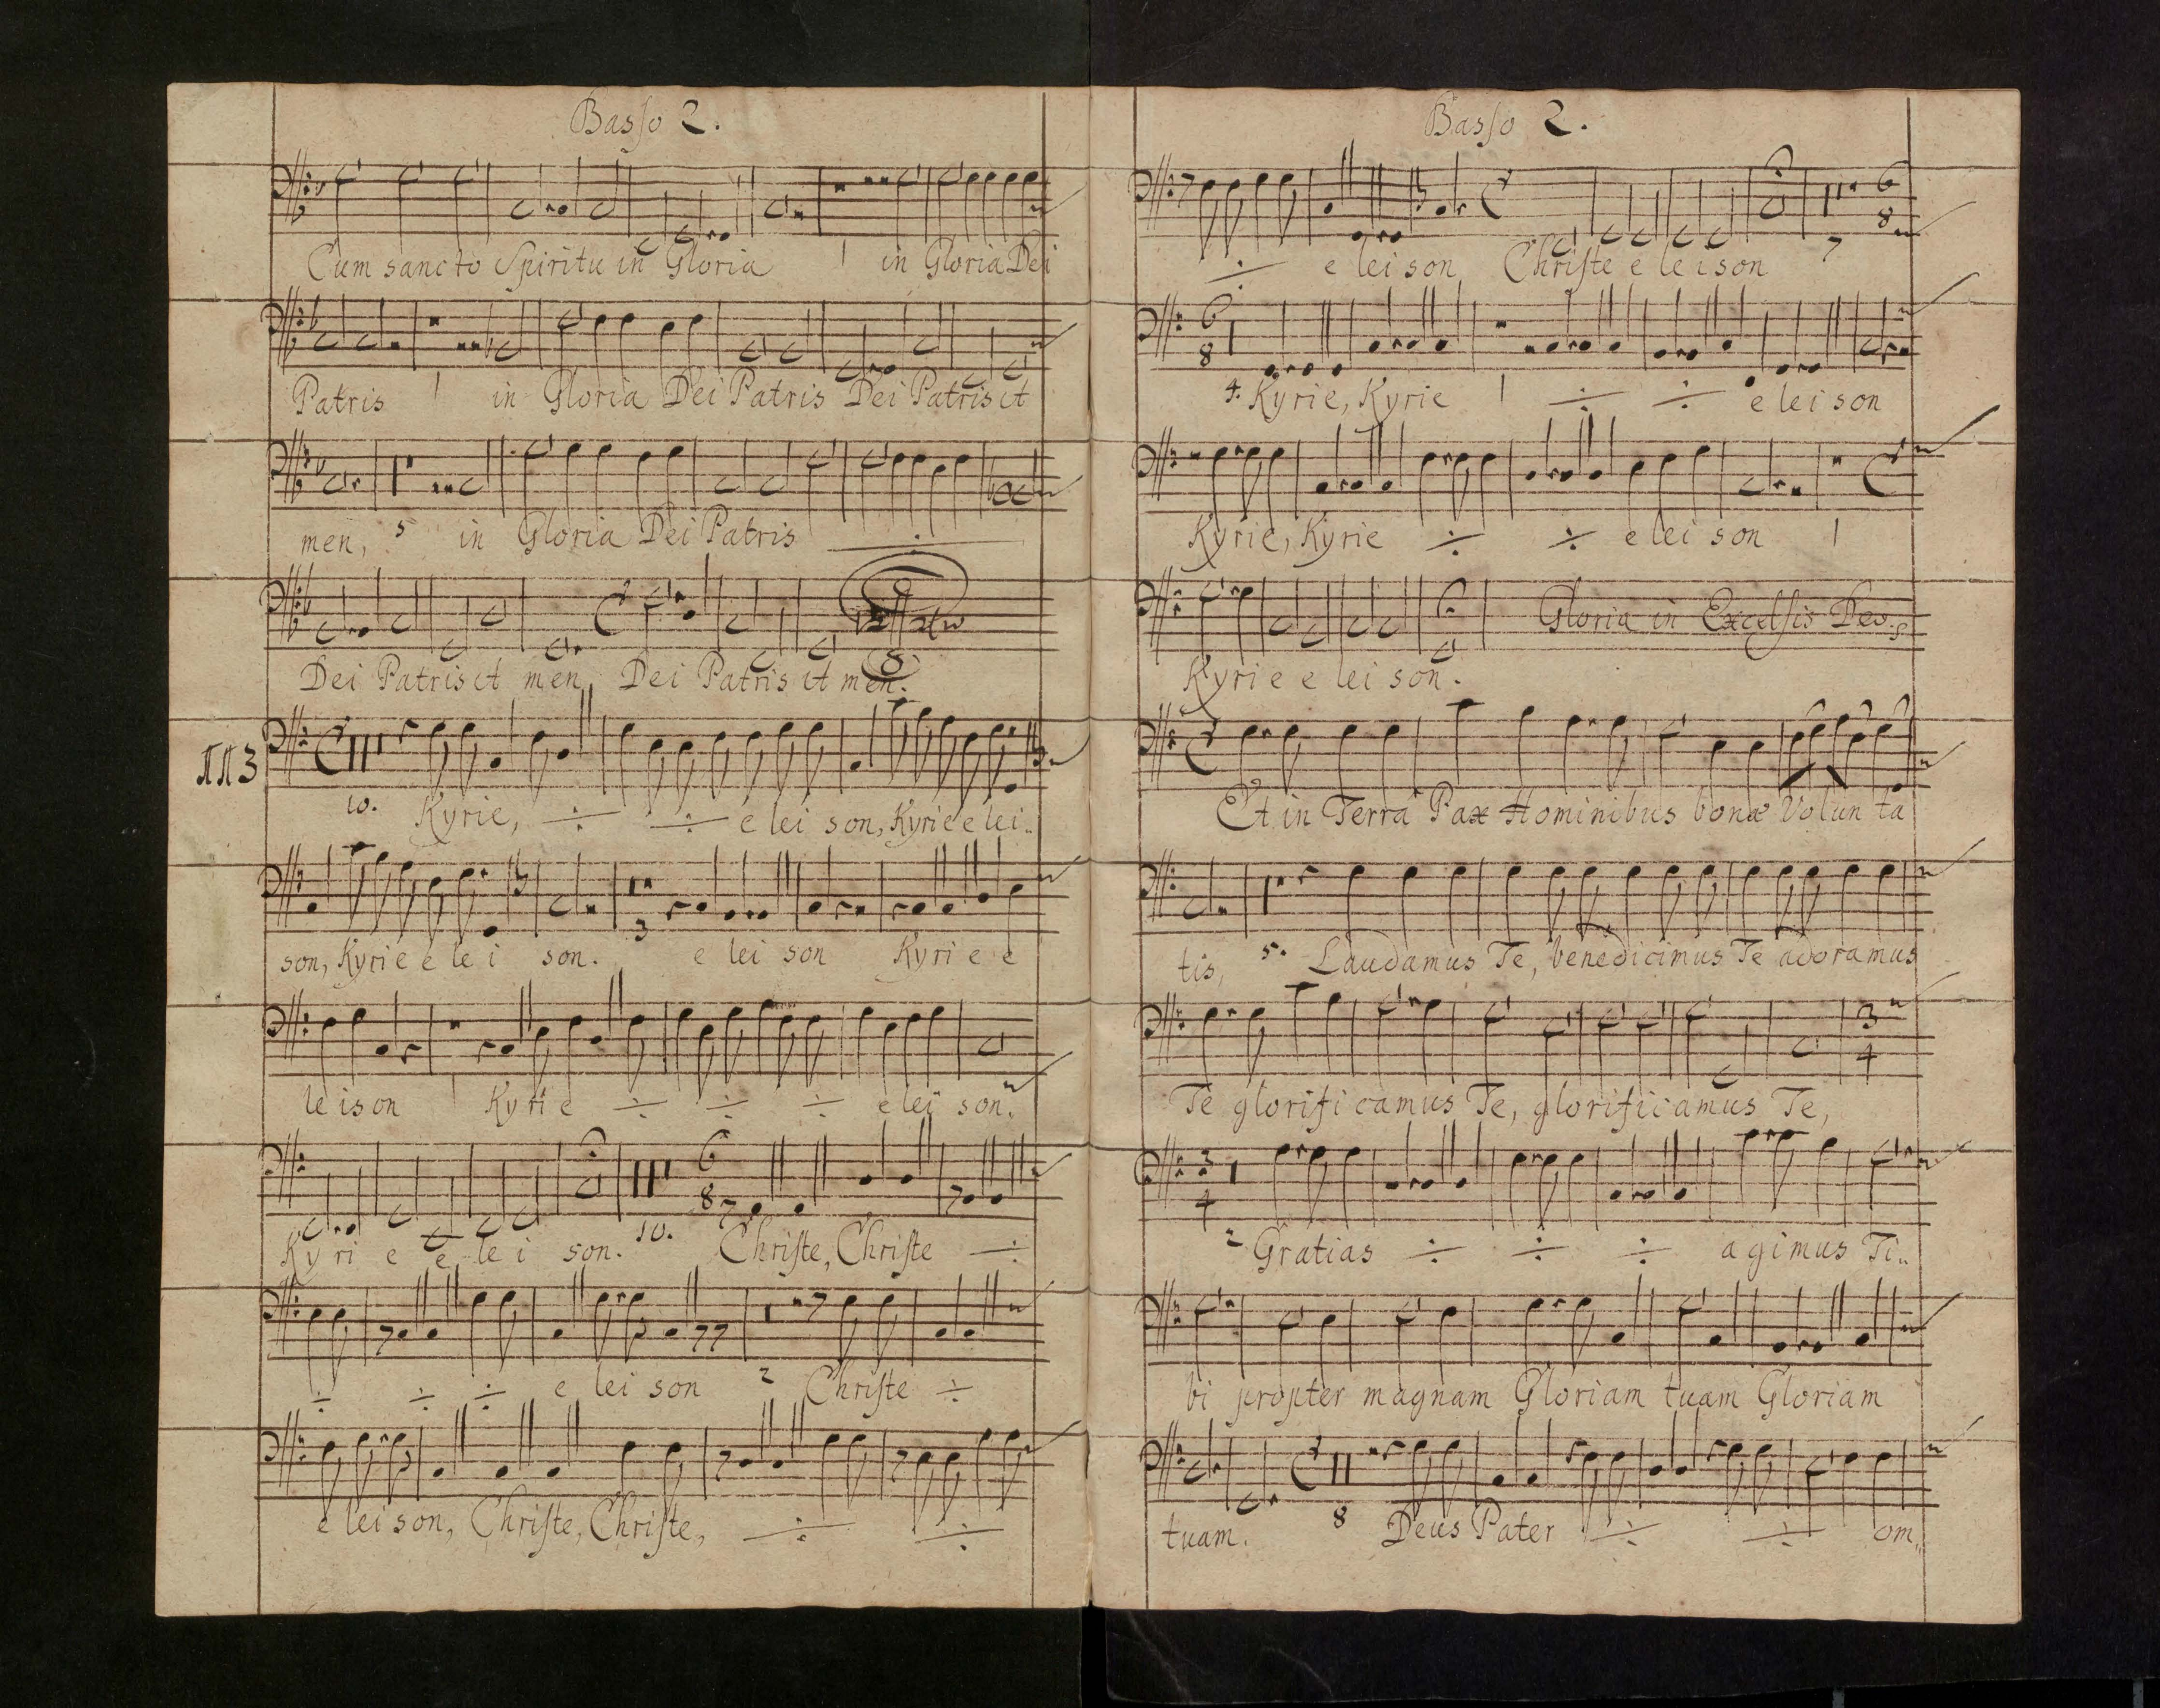 Basso 2.
Cum sancto Spiritu in Gloria 1 in Gloria Dei
Patris 1 in Gloria Dei Patris Dei Patris et
men, 5 in Gloria Dei Patris ÷
Dei Patris et men, Dei Patris et men.
3
10. Kyrie, ÷ ÷ e lei son, Kyrie e lei..
son, Kyrie e le i son. 3 e lei son Kyri e e
le ison 1 Kyri e ÷ ÷ ÷ e lei son.
6
8
Ky ri e e le i son. 10. Christe, Christe ÷
÷ ÷ ÷ e lei son 2 Christe ÷
e lei son, Christe, Christe, ÷ ÷
Basso 2.
6
8
÷ e lei son Christe e le ison 7
6
8
4. Kyrie, Kyrie 1 ÷ ÷ e lei son
Kyrie, Kyrie ÷ ÷ e lei son 1
Gloria in Excelsis Deo.
Kyri e e lei son.
Et in Terra Pax Hominibus bonæ Volun ta
tis, 5. Laudamus Te, benedicimus Te adoramus
3
4
Te glorifi camus Te, glorificamus Te,
3
4
2 Gratias ÷ ÷ ÷ agimus Ti..
bi propter magnam Gloriam tuam Gloriam
tuam. 8 Deus Pater ÷ ÷ om..